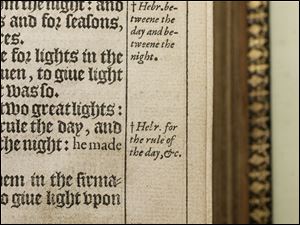 the night: and
s and for seasons,
res.
e for lights in the
uen, to giue light
t was so.
two great lights:
rule the day, and
the night: he made
hem in the firma-
o giue light vpon
† Hebr. be-
tweene the
day and be-
tweene the
night.
† Hebr. for
the rule of
the day, &c.